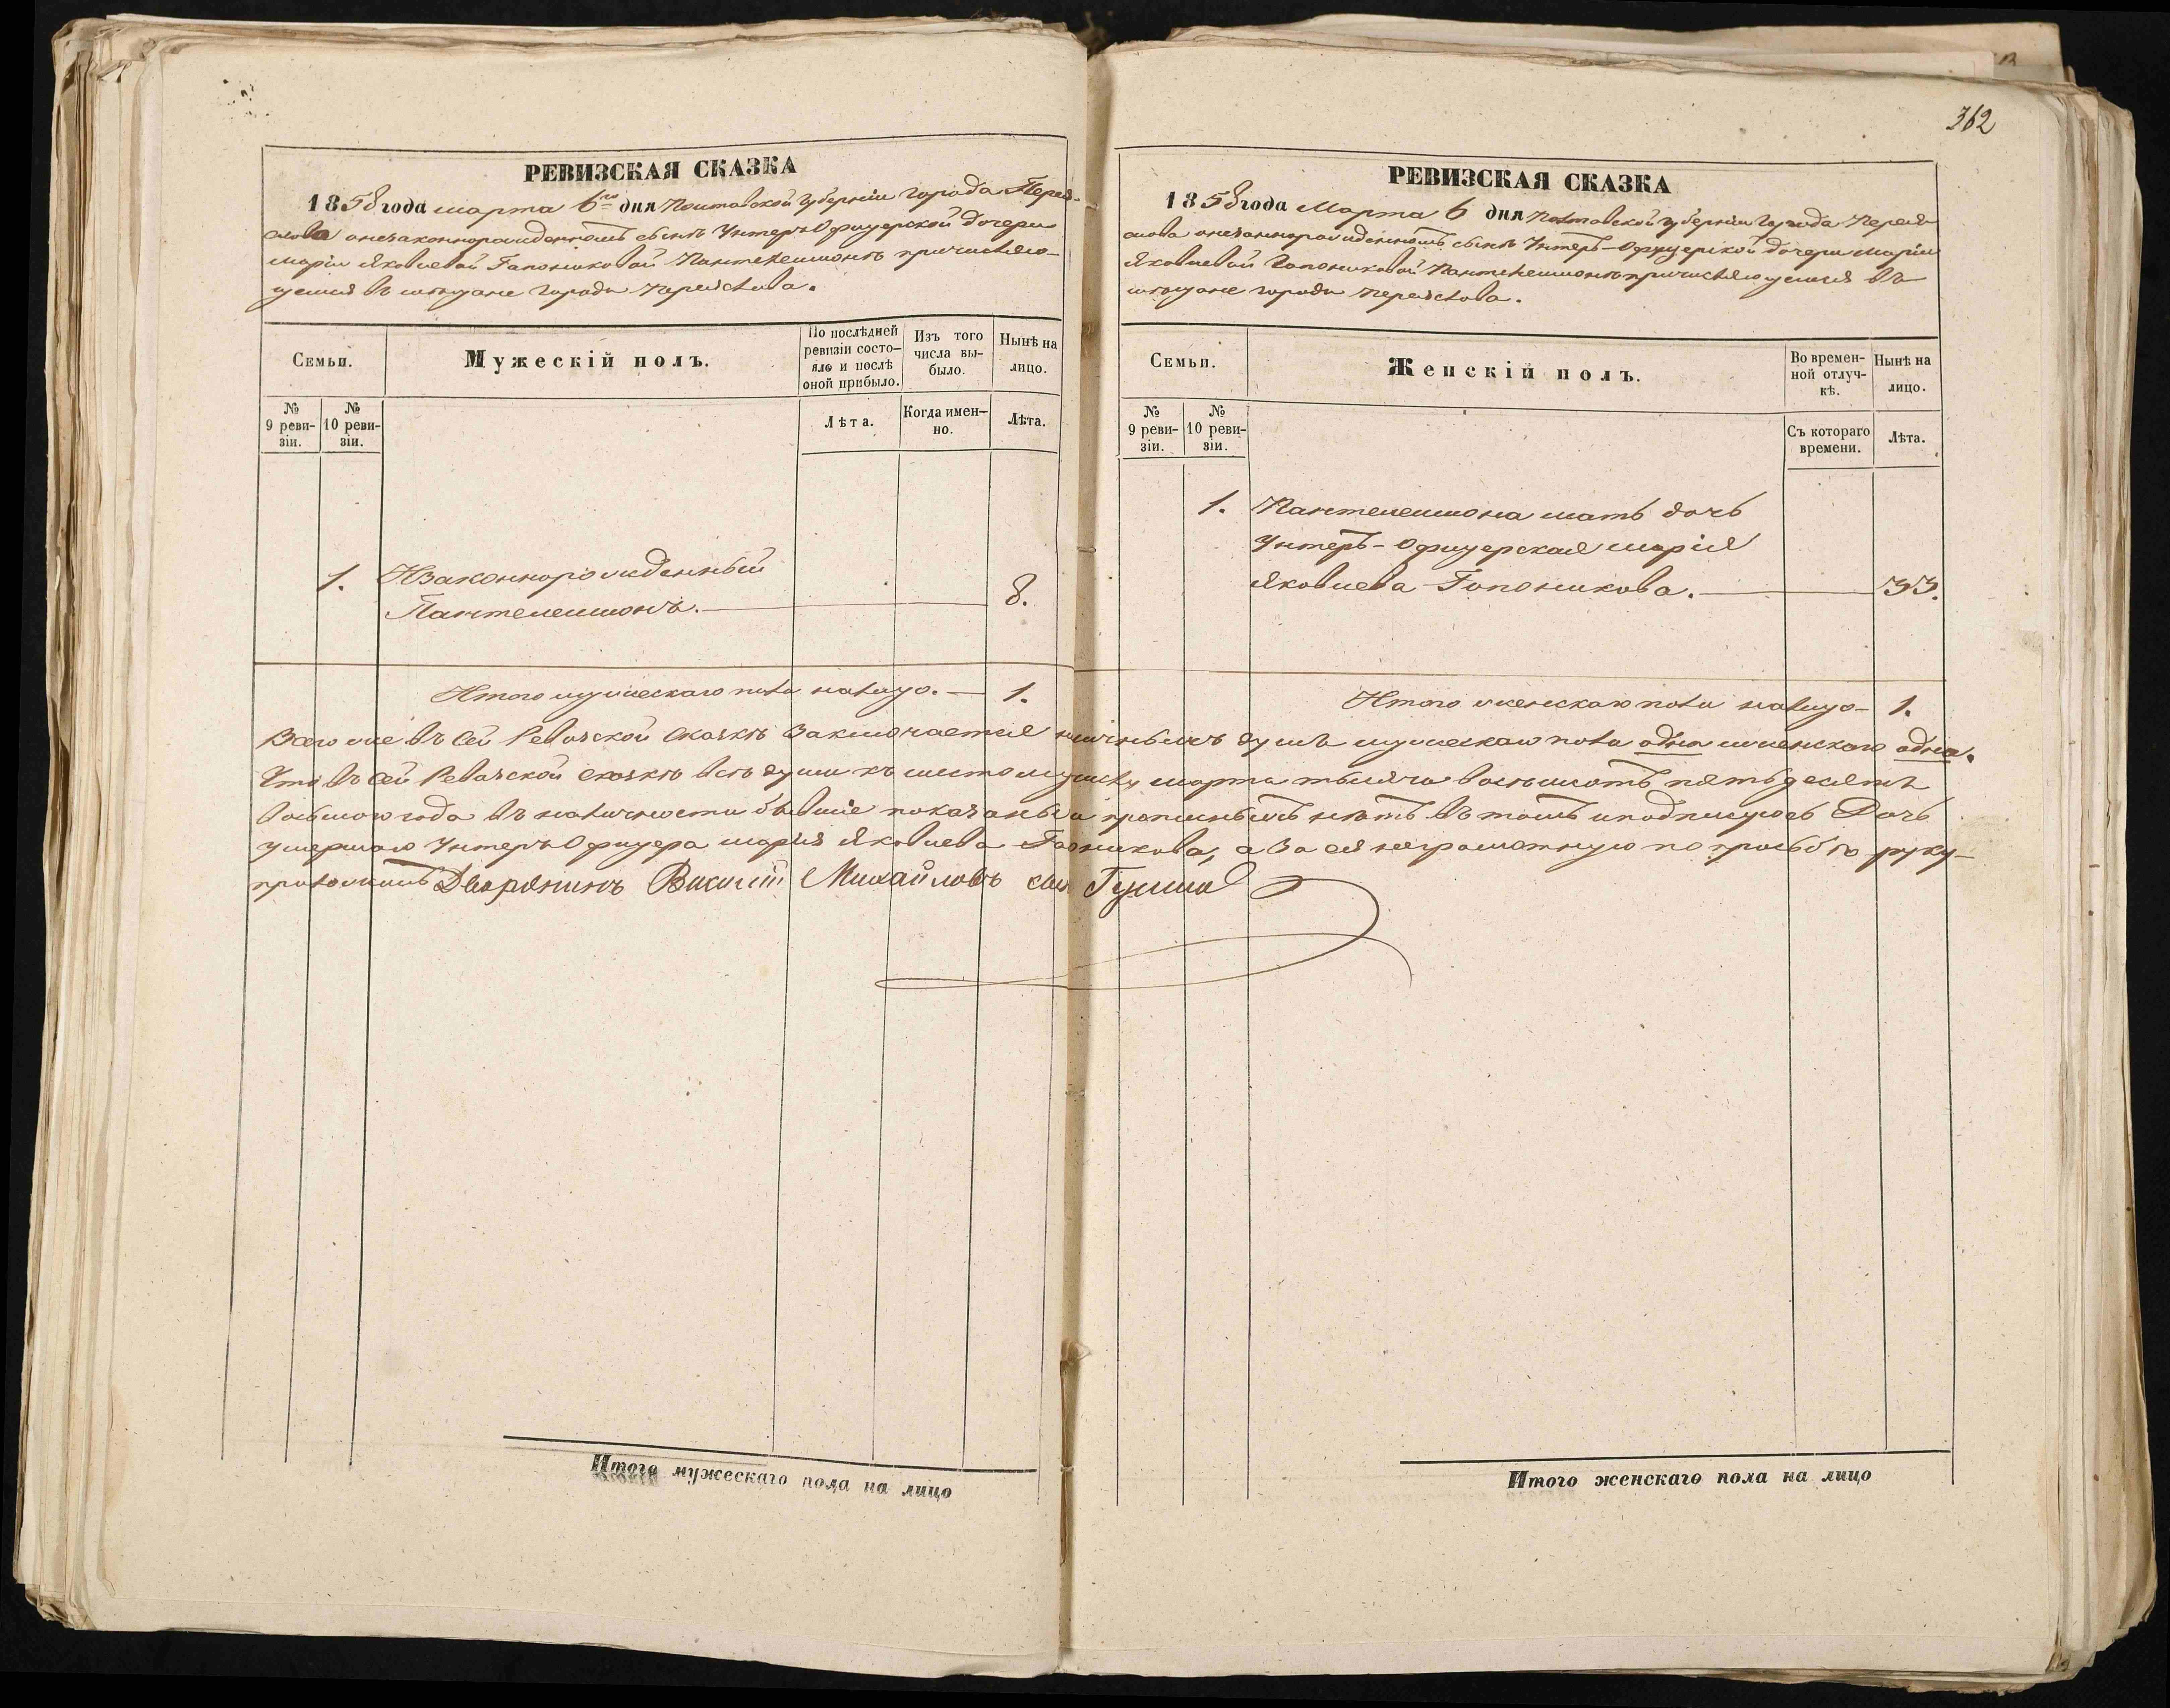 362
РЕВИЗСКАЯ СКАЗКА
1858 года марта 6го дня Полтавской Губерніи Города Перея-
слова онезаконнорожденномъ сынѣ Унтеръ Офицерской дочери
Маріи Яковлевой Гапониковой Пантелеимонѣ причисляю-
щемся въ мѣщане города Переяслова.
Семьи.
Мужескій полъ.
По послѣдней
ревизіи состо-
яло и послѣ
оной прибыло.
Изъ того
числа вы-
было.
Нынѣ на
лицо.
№
9 реви-
зіи.
№
10 реви-
зіи.
Лѣта.
Когда имен-
но.
Лѣта.
1. Нзаконнорожденный
Пантелеимонъ. 8.
Итого мужескаго пола налицо. 1.
РЕВИЗСКАЯ СКАЗКА
1858 года Марта 6 дня Полтавской губерніи Города Перея-
слова онезаннорожденномъ сынѣ Унтеръ-Офицерской дочери Маріи
Яковлевой Гапониковой Пантелеимонѣ причисляющемся въ
мѣщане города Переяслова.
Семьи.
Женскій полъ.
Во времен-
ной отлуч-
кѣ.
Нынѣ на
лицо.
№
9 реви-
зіи.
№
10 реви-
зіи.
Съ котораго
времени.
Лѣта.
1. Пантелеимона мать дочь
Унтеръ-Офицерская Марія
Яковлева Гапоникова. 33.
Итого женскаго пола налицо 1.
Всего же въ сей Ревизской сказкѣ заключается наличныхъ душъ мужескаго пола одна женскаго одна.
Что въ сей Ревизской сказкѣ всѣ души къ шестому числу марта тысяча восемьсотъ пятьдесятъ
восьмого года въ наличности бывшіе показаны и прописныхъ нѣтъ въ томъ и подписуюсь Дочь
умершаго Унтеръ Офицера Марія Яковлева Гапоникова, а за ея неграмотную по прозьбѣ руку
приложилъ Дворянинъ Василій Михайловъ сын
Итого мужескаго пола на лицо
Итого женскаго пола на лицо